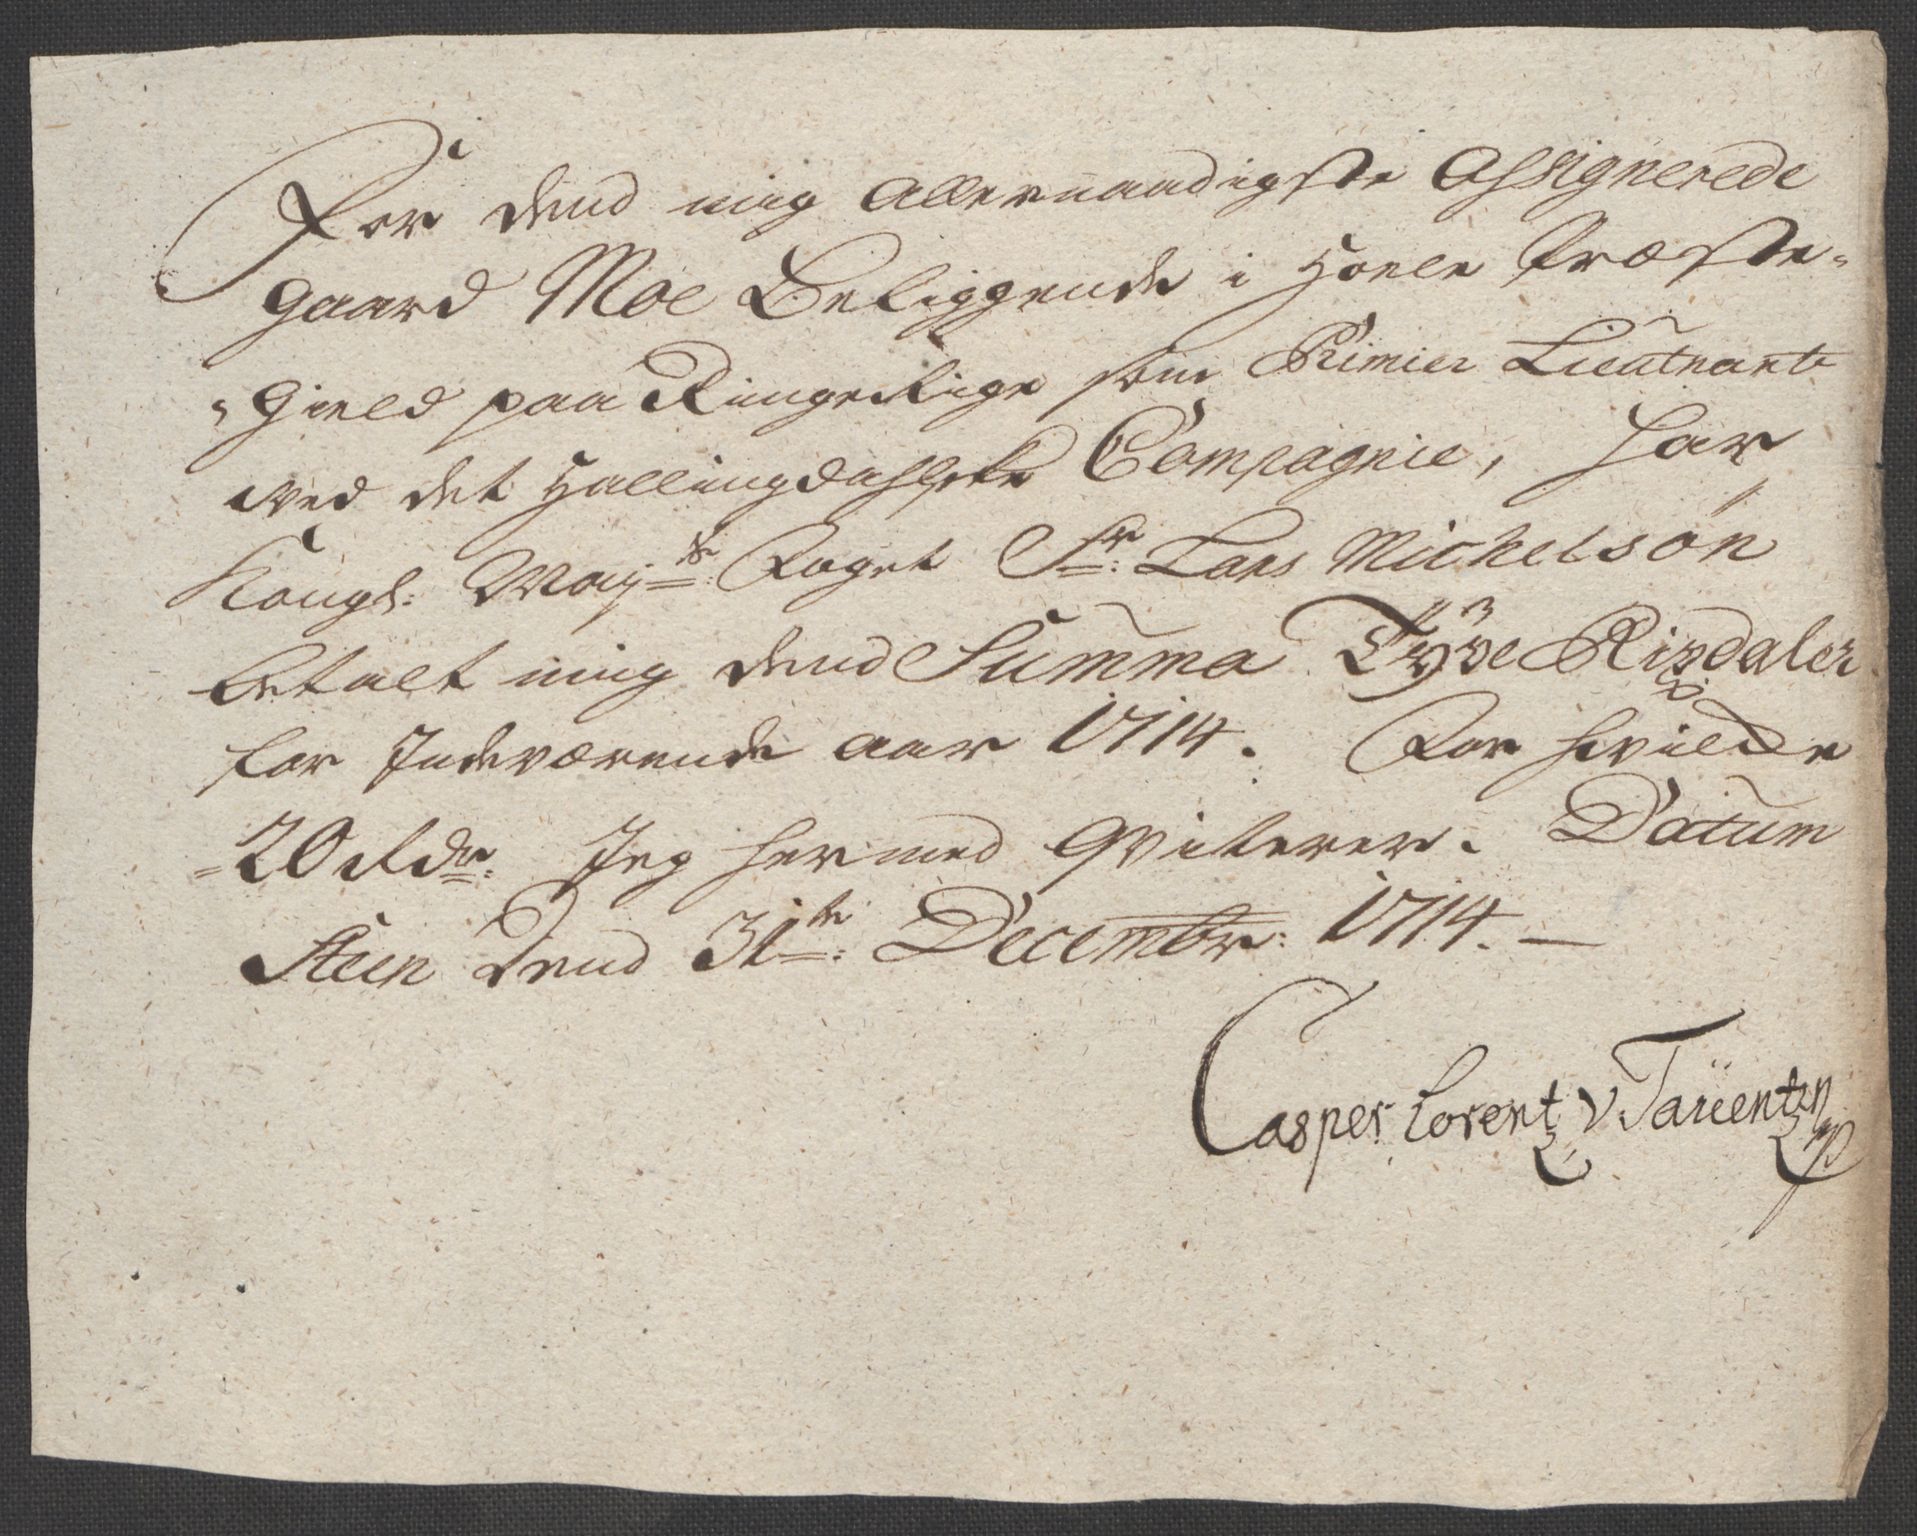 For dend mig Allernaadigste Assignerede
gaard Moe Beliggende i Hoele Præste-
gield paa Ringerige som Primier Lieutnant
ved det Hallingdahlske Compagnie, har
Kongl: Mayts: Foget Sr: Lars Michelsøn
betalt mig dend Summa Tÿve Rixdaler
for Indeværende aar 1714. For hvilcke
-20 rdr: Jeg hermed Qviterer. Datum
Steen Dend 31te: Decembr: 1714. —
Casper Lorentz v Tarüentzen